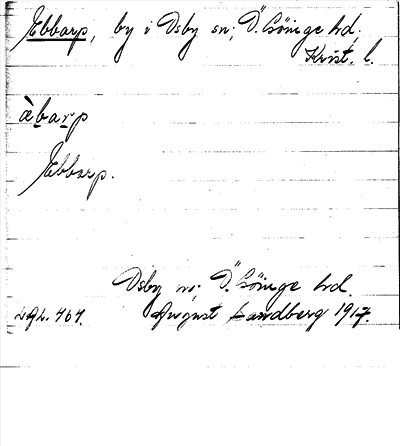 Ebbarp, by i Osby sn; Ö. Göinge hd.
Krist. l.
àbarp
Ebbarp.
Osby sn; Ö. Göinge hd.
LGL. 464. August Landberg 1917.